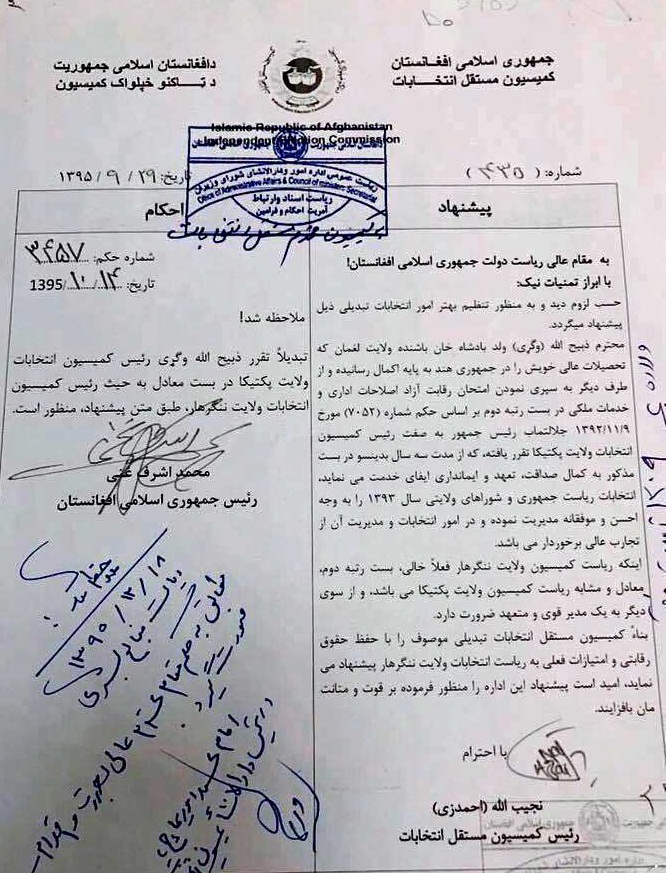 جمهوری اسلامی افغانستان
کمیسیون مستقل انتخابات
دافغانستان اسلامی جمهوریت
د ټاکنو خپلواک کمیسیون
Islamic Republic of Afghanistan
Independent Election Commission
ریاست عمومی اداره امور و دارالانشای شورای وزیران
Office of Administrative Affairs & Council of ministers Secretariat
ریاست اسناد و ارتباط
آمریت احکام و فرامین
شماره: (۴۳۵)
تاریخ: ۲۹ / ۹ / ۱۳۹۵
پیشنهاد
به مقام عالی ریاست دولت جمهوری اسلامی افغانستان!
با ابراز تمنیات نیک:
حسب لزوم دید و به منظور تنظیم بهتر امور انتخابات تبدیلی ذیل
پیشنهاد میگردد.
محترم ذبیح الله (وگری) ولد بادشاه خان باشنده ولایت لغمان که
تحصیلات عالی خویش را در جمهوری هند به پایه اکمال رسانیده و از
طرف دیگر به سپری نمودن امتحان رقابت آزاد اصلاحات اداری و
خدمات ملکی در بست رتبه دوم بر اساس حکم شماره (۷۰۵۲) مورخ
۱۳۹۲/۱۱/۹ جلالتماب رئیس جمهور به صفت رئیس کمیسیون
انتخابات ولایت پکتیکا تقرر یافته، که از مدت سه سال بدینسو در بست
مذکور به کمال صداقت، تعهد و ایمانداری ایفای خدمت می نماید،
انتخابات ریاست جمهوری و شوراهای ولایتی سال ۱۳۹۳ را به وجه
احسن و موفقانه مدیریت نموده و در امور انتخابات و مدیریت آن از
تجارب عالی برخوردار می باشد.
اینکه ریاست کمیسیون ولایت ننگرهار فعلاً خالی، بست رتبه دوم،
معادل و مشابه ریاست کمیسیون ولایت پکتیکا می باشد، و از سوی
دیگر به یک مدیر قوی و متعهد ضرورت دارد.
بناءً کمیسیون مستقل انتخابات تبدیلی موصوف را با حفظ حقوق
رقابتی و امتیازات فعلی به ریاست انتخابات ولایت ننگرهار پیشنهاد می
نماید، امید است پیشنهاد این اداره را منظور فرموده بر قوت و متانت
مان بافزایند.
با احترام
نجیب الله (احمدزی)
رئیس کمیسیون مستقل انتخابات
احکام
به کمیسیون محترم مستقل انتخابات
شماره حکم: ۳۴۵۷
تاریخ: ۱۴/ ۱۰/ 1395
ملاحظه شد!
تبدیلاً تقرر ذبیح الله وگری رئیس کمیسیون انتخابات
ولایت پکتیکا در بست معادل به حیث رئیس کمیسیون
انتخابات ولایت ننگرهار، طبق متن پیشنهاد، منظور است.
محمد اشرف غنی
رئیس جمهوری اسلامی افغانستان
ملاحظه شد!
۱۳۹۵ / ۱۲ / ۱۸
ریاست منابع بشری
مطابق به حکم مقام محترم عالی
صورت گیرد.